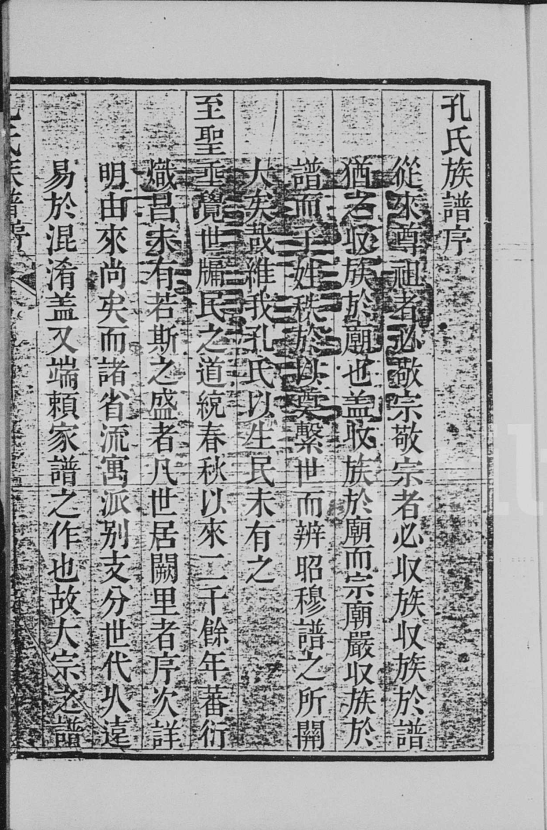 孔氏族譜序
從來尊祖者必敬宗敬宗者必収族収族於譜
猶之収族於廟也盖収族於廟而宗廟嚴収族於
譜而子姓秩於以奠繫世而辨昭穆譜之所關
大矣哉維我孔氏以生民未有之
至聖垂覺世牖民之道統春秋以來二千餘年蕃衍
熾昌未有若斯之盛者凡世居闕里者序次詳
明由來尚矣而諸省流寓派别支分世代乆遠
易於混淆盖又端賴家譜之作也故大宗之譜
孔氏族譜序